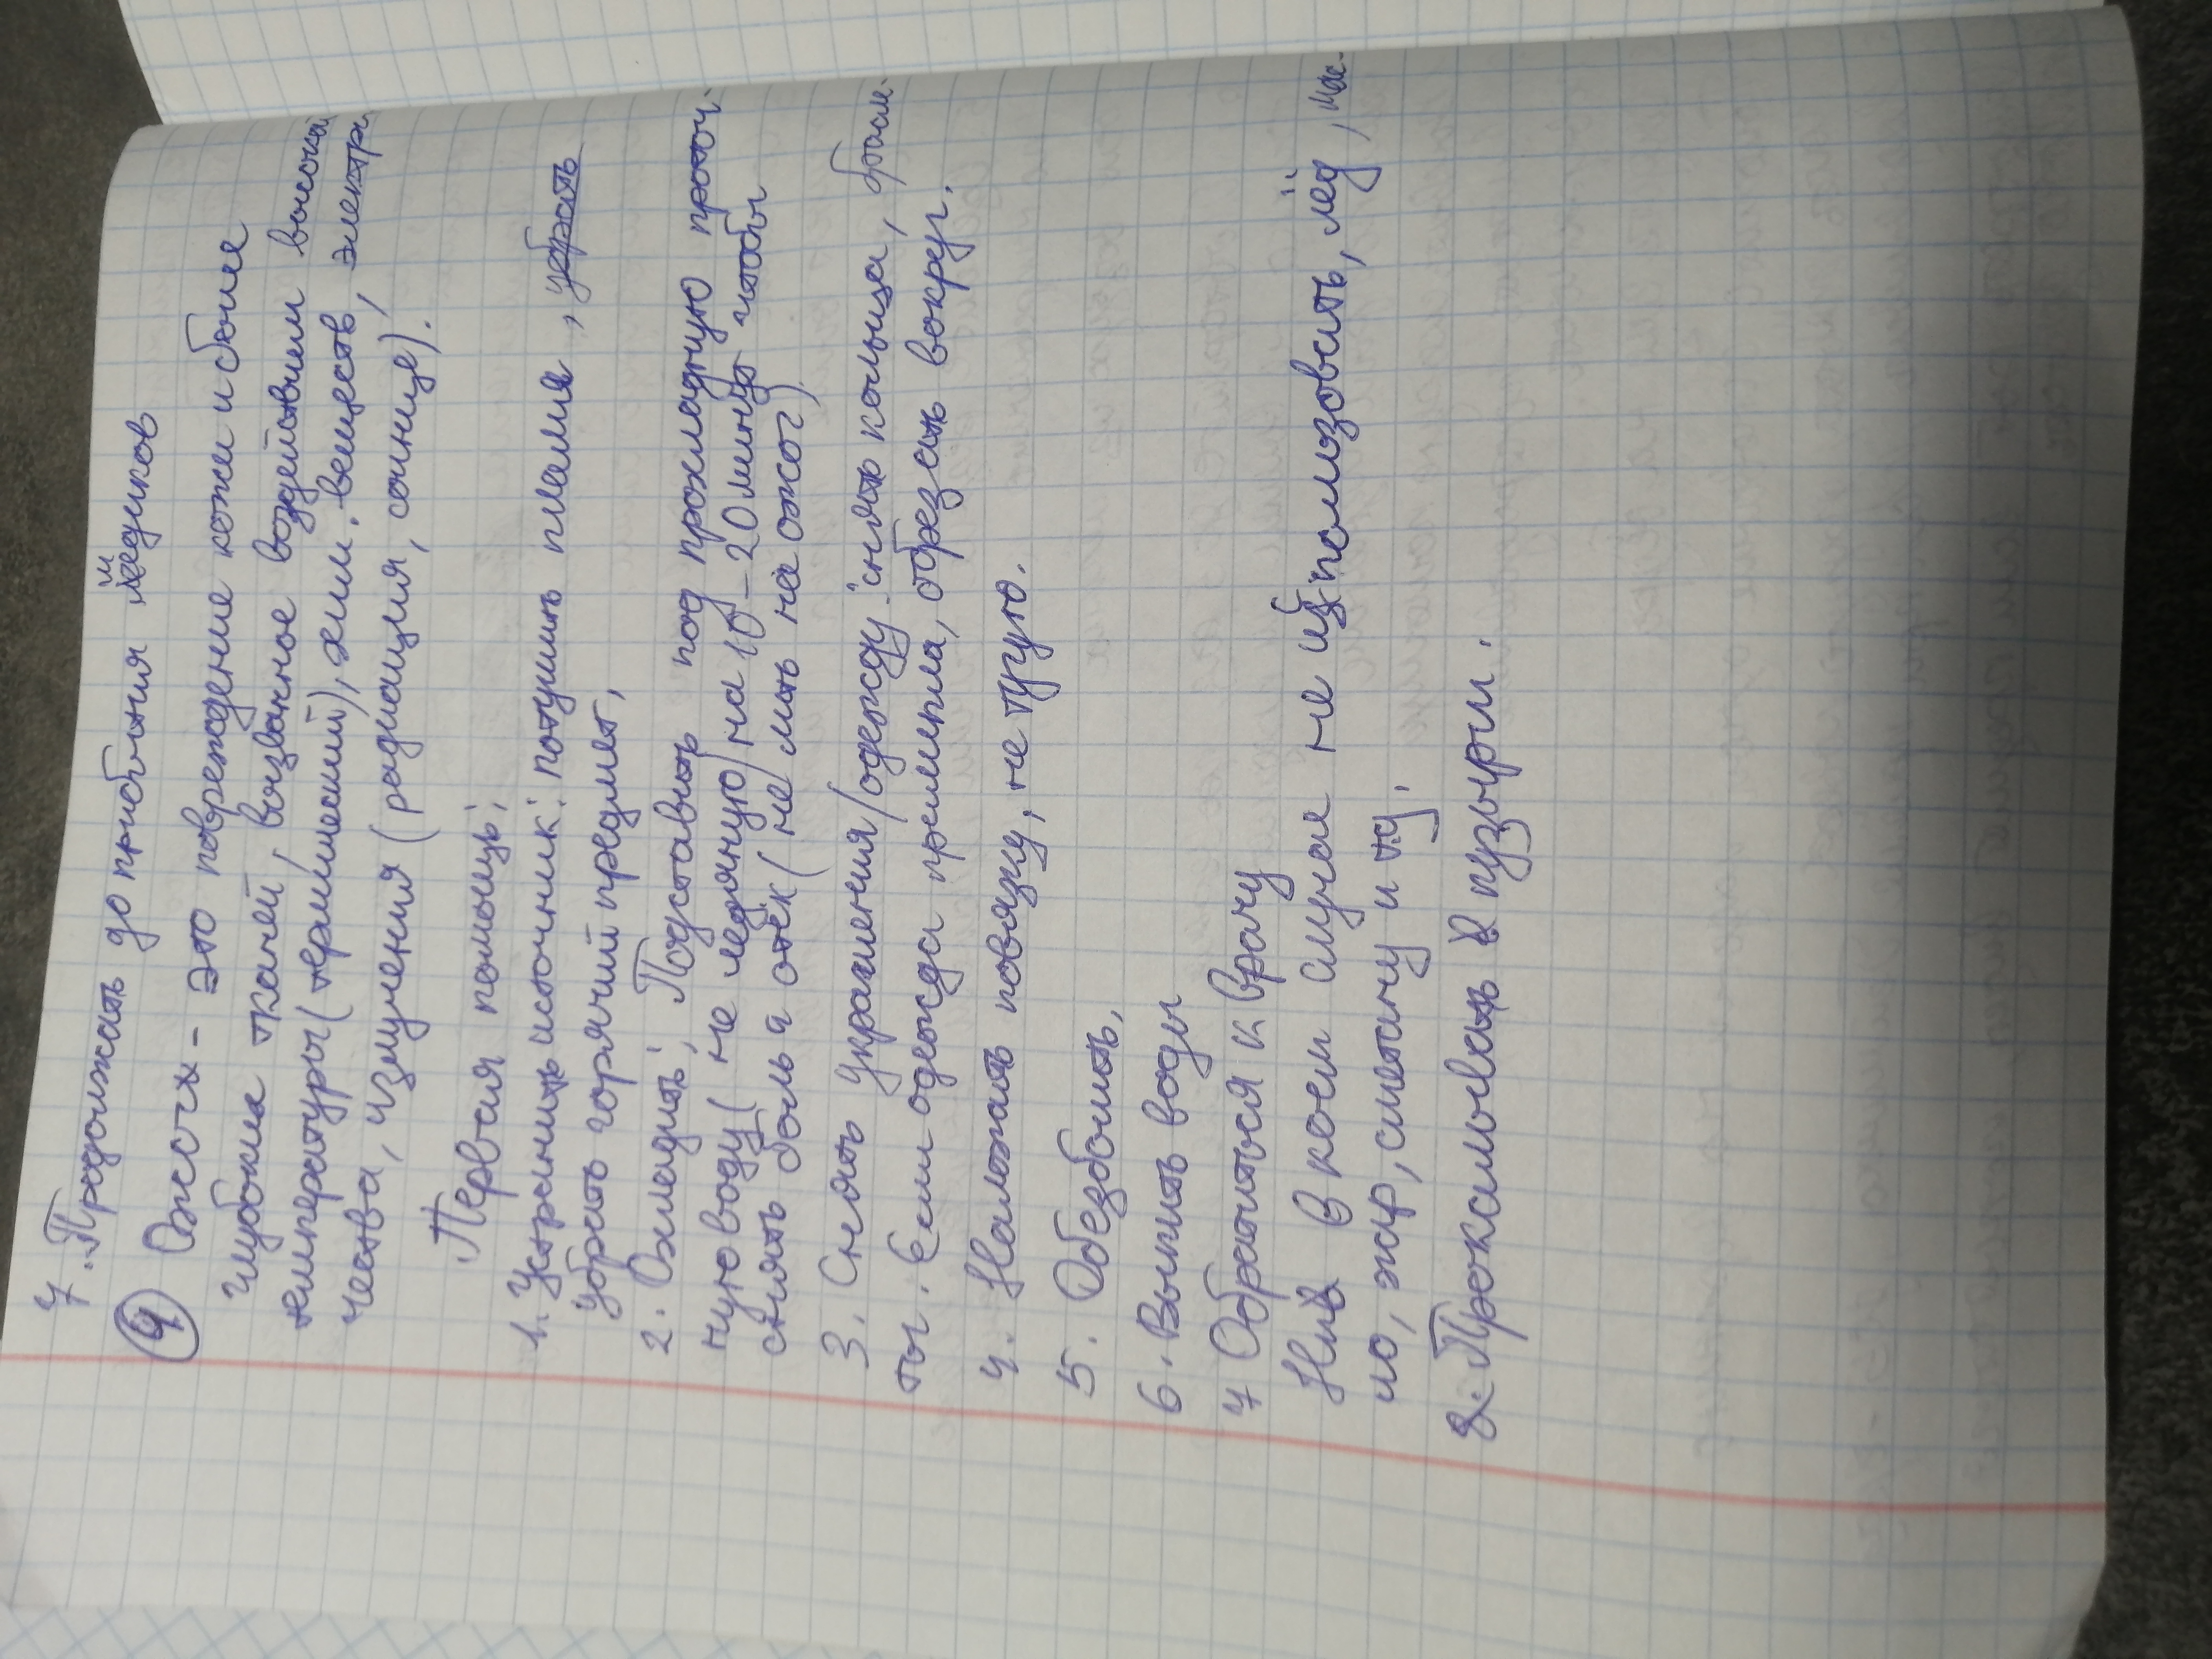 7. Продолжать до прибытия медиков
④ Ожоги - это повреждение кожи и более
глубоких тканей, вызванное воздействием высокой
температуры (термический), хим. веществ, электри
чества, излучения (радиация, солнце).
Первая помощь:
1. Устранить источник: потушить пламя, убрать
убрать горячий предмет,
2. Охладить: Подставить под прохладную проточ-
ную воду (не ледяную) на 10-20 минут чтобы
снять боль и отёк (не лить на ожог)
3. Снять украшения/одежду: снять кольца, брасле-
ты. Если одежда прилипла, обрезать вокруг.
4. Наложить повязку, не тугую.
5. Обезболить,
6. Выпить воды
7 Обратиться к врачу
Ни в коем случае не использовать, лёд, мас-
ло, жир, сметану и тд.
8. Прокалывать пузыри.